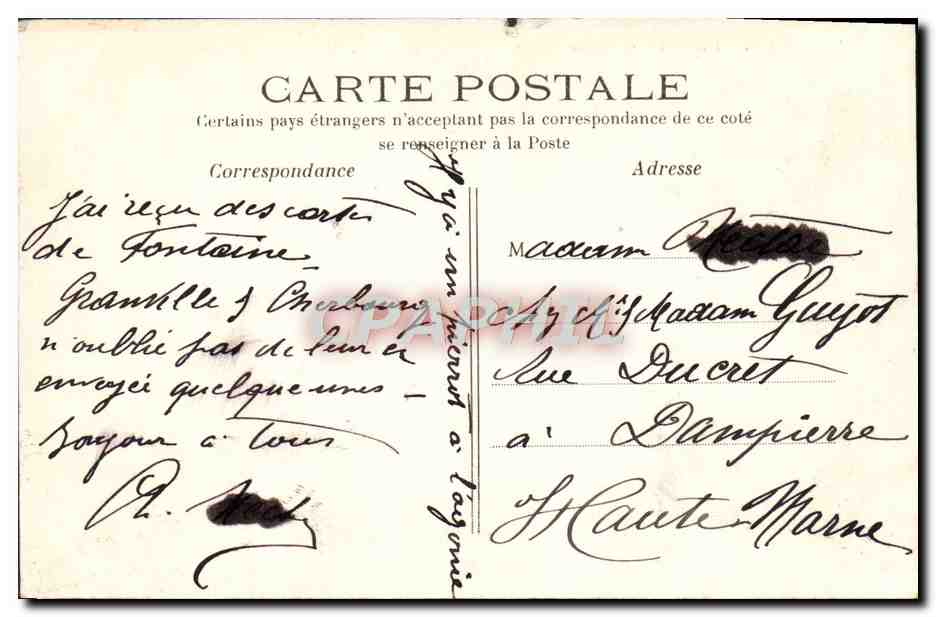 CARTE POSTALE
Certains pays étrangers n'acceptant pas la correspondance de ce coté
se renseigner à la Poste
Correspondance
J'ai reçu des cartes
de Fontaine
Granville & Cherbourg
n'oublié pas de leur en
envoyée quelques unes –
Bonjour à tous
Ch.
Il y a un pierrot à l'agonie
Adresse
Madam
Chez Madam Guyot
Rue Ducret
à Dampierre
Hte Haute-Marne
CPAPHIL